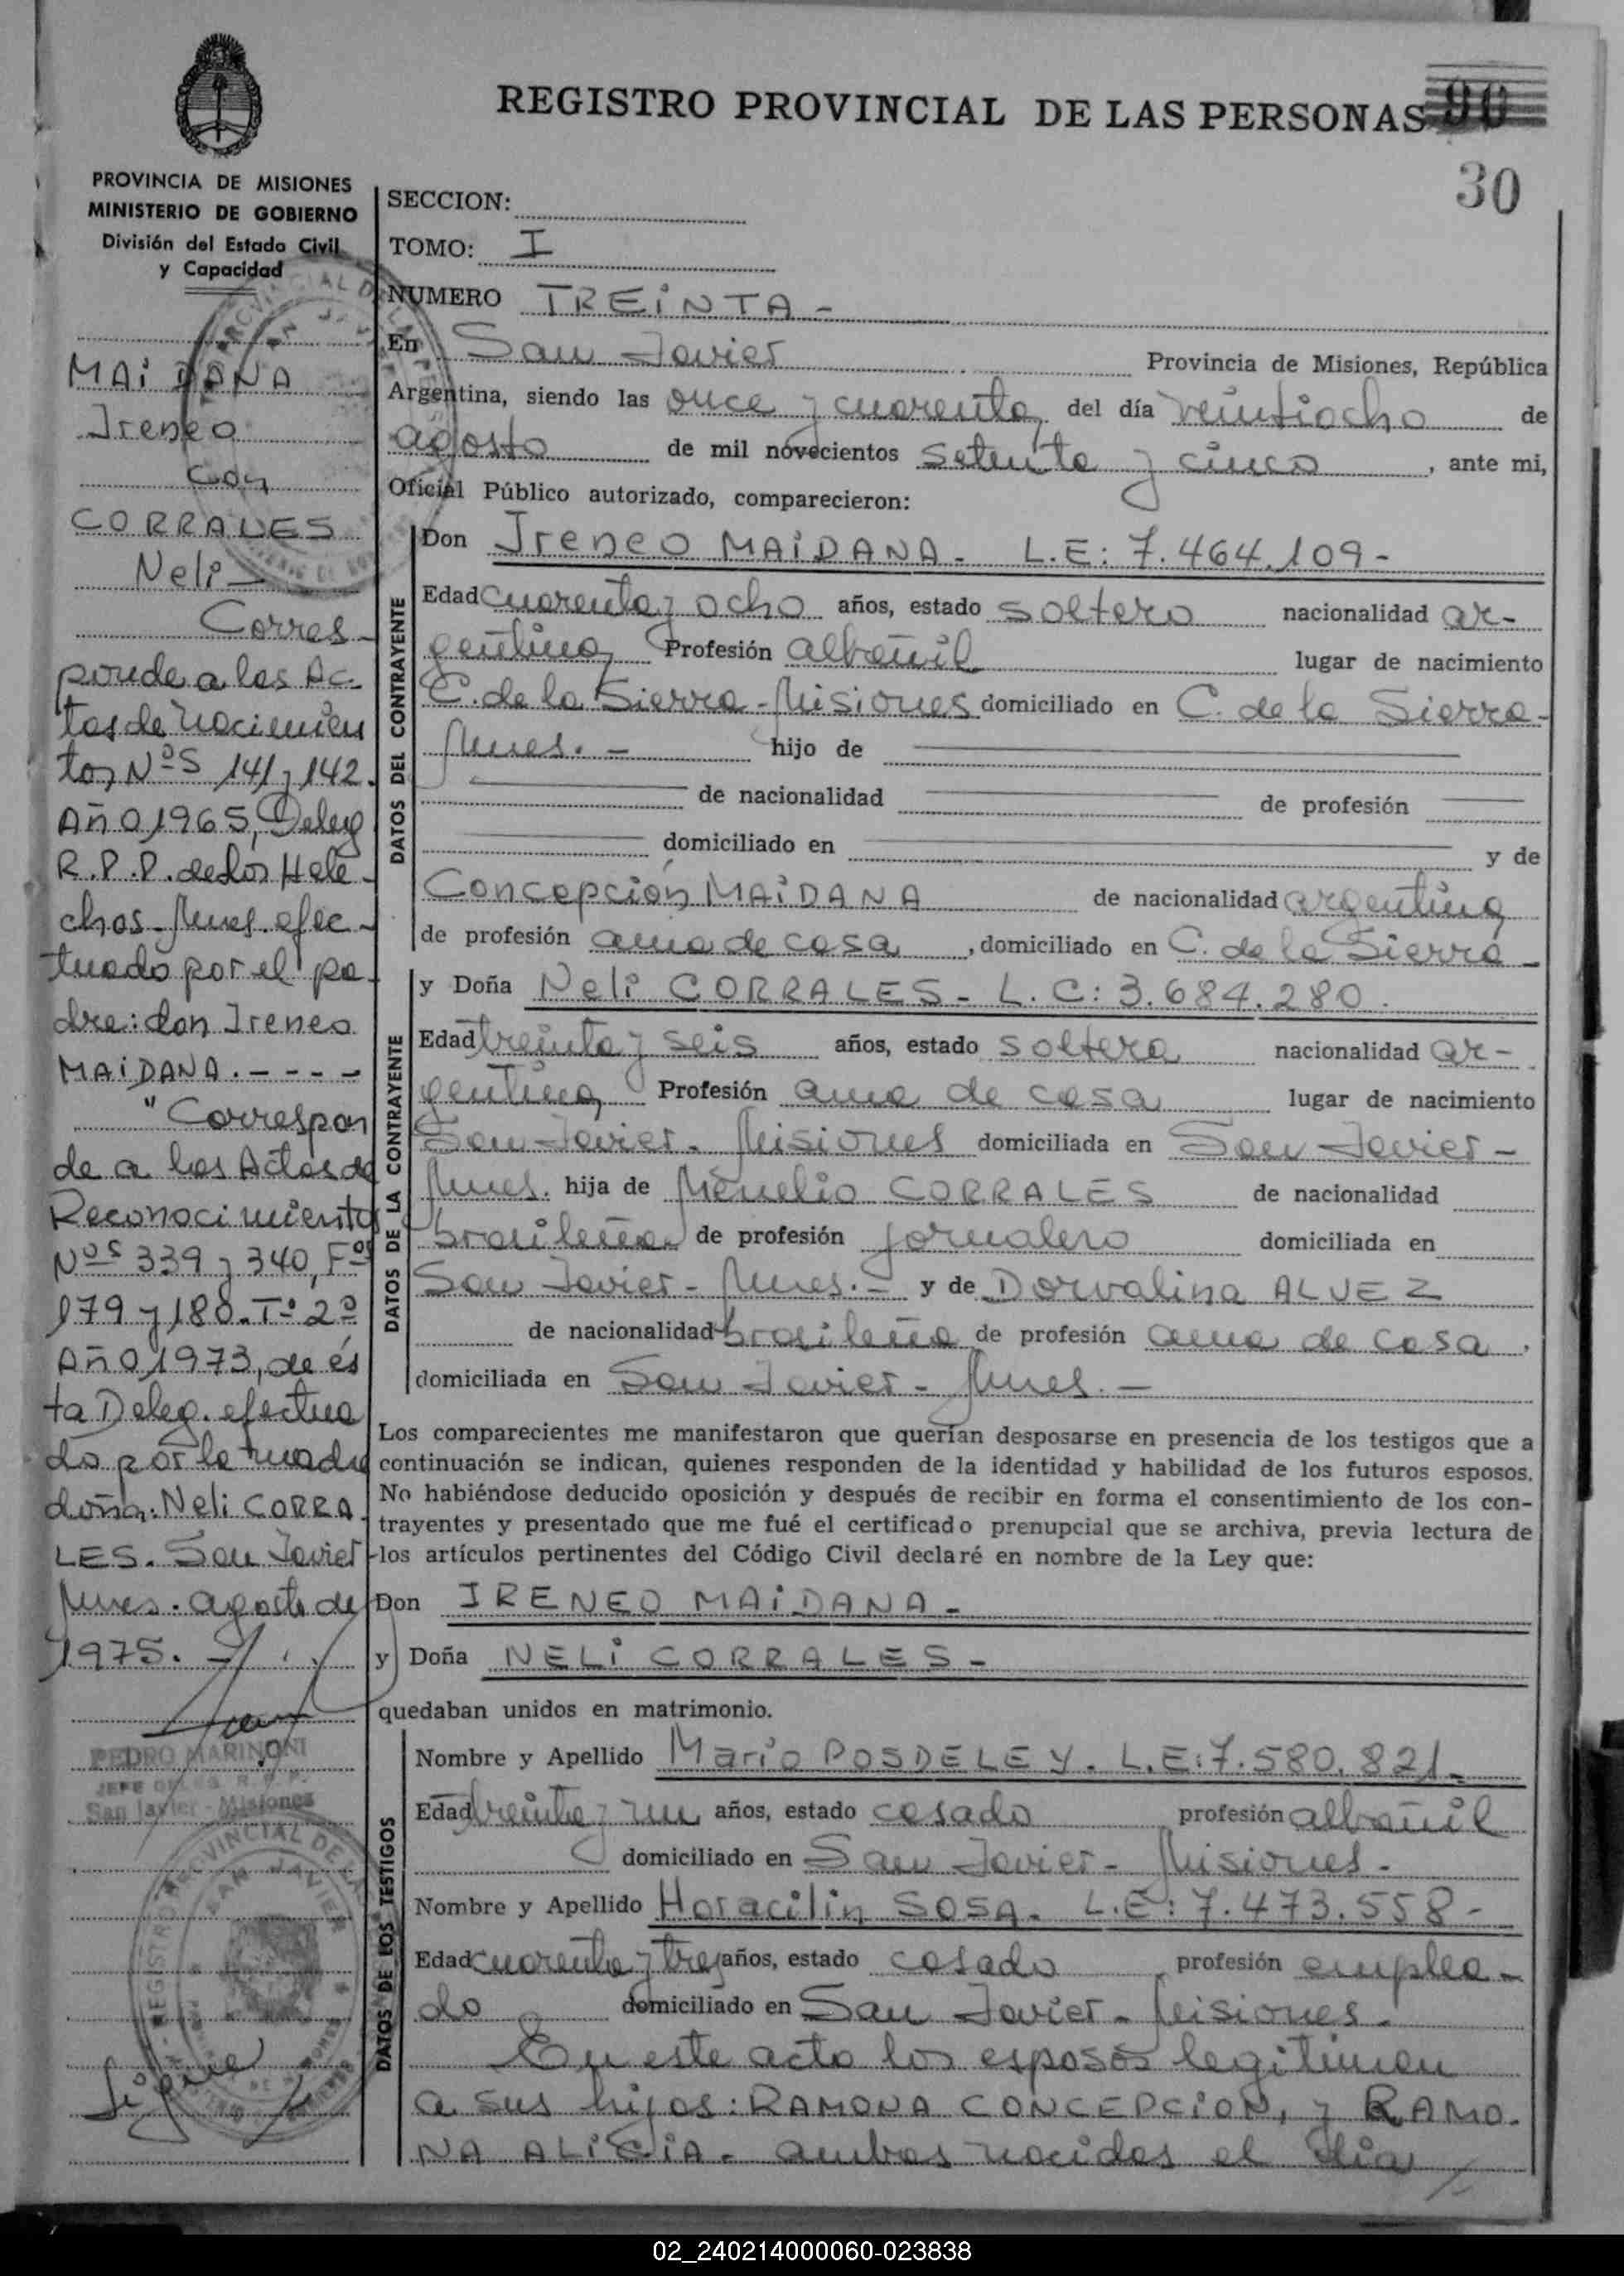 REGISTRO PROVINCIAL DE LAS PERSONAS
90
30
PROVINCIA DE MISIONES
MINISTERIO DE GOBIERNO
División del Estado Civil
y Capacidad
MAiDANA
Ireneo
con
CORRALES
Neli -
Corres-
ponde a las Ac-
tas de nacimien
tos, Nºs 141 y 142.
Año 1965, Deleg
R.P.P. de Los Hele-
chos - Mnes. efec-
tuado por el pa-
dre: don Ireneo
MAiDANA. - - - -
"Correspon
de a las Actas de
Reconocimiento
Nºs 339 y 340, Fºs
179 y 180. Tº 2º
Año 1973, de és
ta Deleg. efectua
do por la madre
doña: Neli CORRA
LES. San Javier
Mnes. agosto de
1975. -
PEDRO MARINONI
JEFE DELEG. R. P. P.
San Javier - Misiones
Sigue
SECCION:
TOMO: I
NUMERO TREiNTA -
En San Javier Provincia de Misiones, República
Argentina, siendo las once y cuarenta del día veintiocho de
agosto de mil novecientos setenta y cinco, ante mi,
Oficial Público autorizado, comparecieron:
DATOS DEL CONTRAYENTE
Don Ireneo MAiDANA - L.E: 7.464.109 -
Edad cuarenta y ocho años, estado soltero nacionalidad ar-
gentina Profesión albañil lugar de nacimiento
C. de la Sierra - Misiones domiciliado en C. de la Sierra -
Mnes. - hijo de
de nacionalidad de profesión
domiciliado en y de
Concepción MAiDANA de nacionalidad argentina
de profesión ama de casa, domiciliado en C. de la Sierra -
DATOS DE LA CONTRAYENTE
y Doña Neli CORRALES - L.C: 3.684.280.
Edad treinta y seis años, estado soltera nacionalidad ar-
gentina Profesión ama de casa lugar de nacimiento
San Javier - Misiones domiciliada en San Javier -
Mnes. hija de CORRALES de nacionalidad
brasileña de profesión jornalero domiciliada en
San Javier - Mnes. - y de Dorvalina ALVEZ
de nacionalidad brasileña de profesión ama de casa.
domiciliada en San Javier - Mnes. -
Los comparecientes me manifestaron que querían desposarse en presencia de los testigos que a
continuación se indican, quienes responden de la identidad y habilidad de los futuros esposos.
No habiéndose deducido oposición y después de recibir en forma el consentimiento de los con-
trayentes y presentado que me fué el certificado prenupcial que se archiva, previa lectura de
los artículos pertinentes del Código Civil declaré en nombre de la Ley que:
Don IRENEO MAiDANA -
y Doña NELi CORRALES -
quedaban unidos en matrimonio.
DATOS DE LOS TESTIGOS
Nombre y Apellido Mario POSDELEY. L.E: 7.580.821 -
Edad treinta y un años, estado casado profesión albañil
domiciliado en San Javier - Misiones -
Nombre y Apellido Horacilin SOSA. L.E: 7.473.558 -
Edad cuarenta y tres años, estado casado profesión emplea-
do domiciliado en San Javier - Misiones.
En este acto los esposos legitiman
a sus hijos: RAMONA CONCEPCiON, y RAMO-
NA ALiCiA - ambas nacidas el dia
02_240214000060-023838